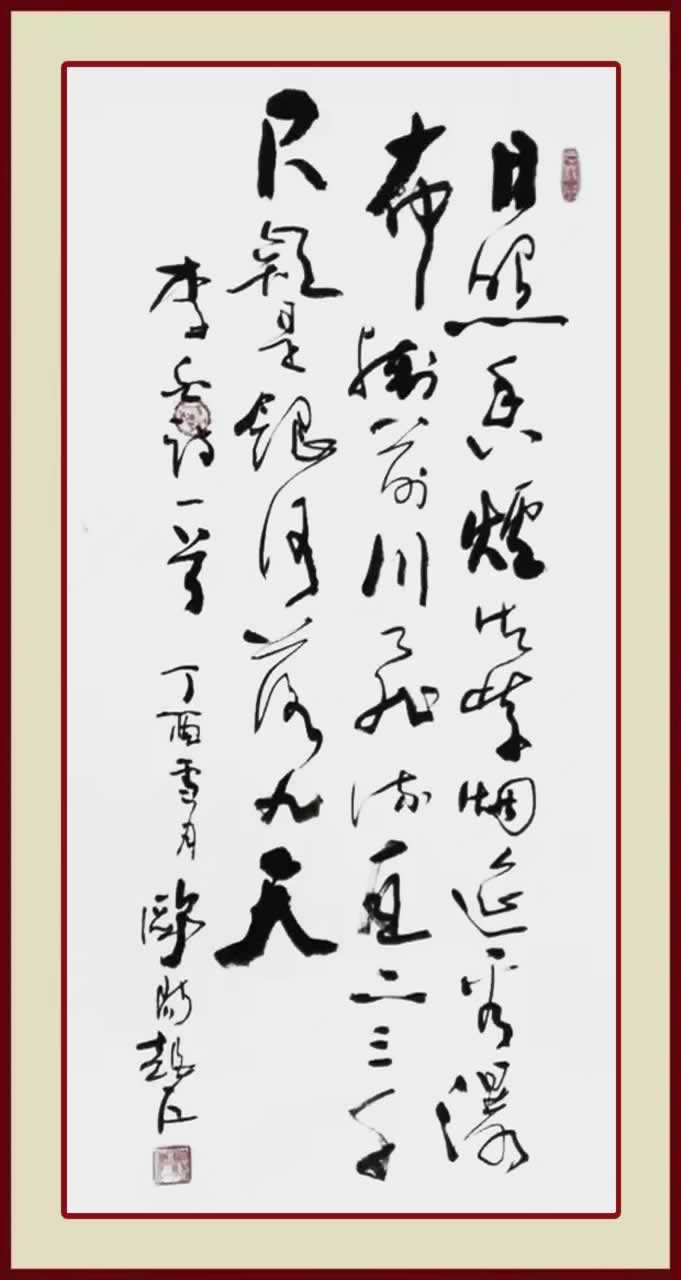 日照香爐生紫烟遥看瀑
布掛前川飛流直下三千
尺疑是銀河落九天
李白詩一首 丁酉雪月